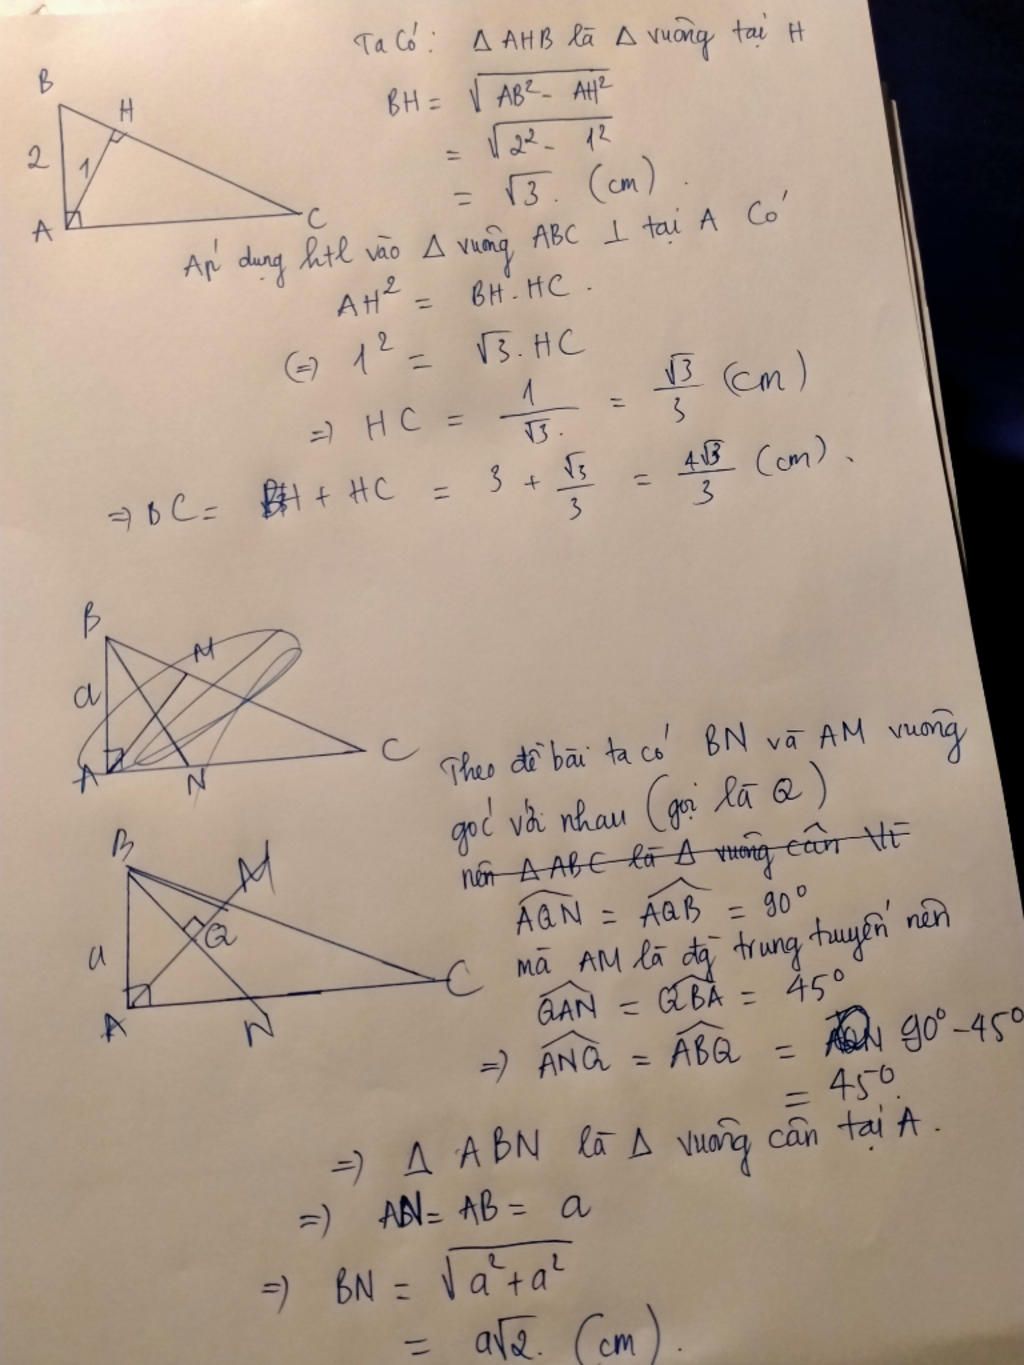 Ta Có: Δ AHB là Δ vuông tại H
BH = √(AB² - AH²)
= √(2² - 1²)
= √3. (cm).
B
H
2
1
A
C
Áp dụng htl vào Δ vuông ABC ⊥ tại A Có
AH² = BH.HC.
(=) 1² = √3.HC
=) HC = 1/√3. = √3/3 (cm)
=) BC = BH + HC = 3 + √3/3 = 4√3/3 (cm).
B
M
a
A
N
C
Theo đề bài ta có BN và AM vuông
góc với nhau (gọi là Q)
nên Δ ABC là Δ vuông cân Vì
B
M
Q
a
A
N
C
AQN = AQB = 90°
mà AM là đg trung tuyến nên
QAN = QBA = 45°
=) ANQ = ABQ = 90° - 45°
= 45°.
=) Δ ABN là Δ vuông cân tại A.
=) AN = AB = a
=) BN = √(a² + a²)
= a√2. (cm).